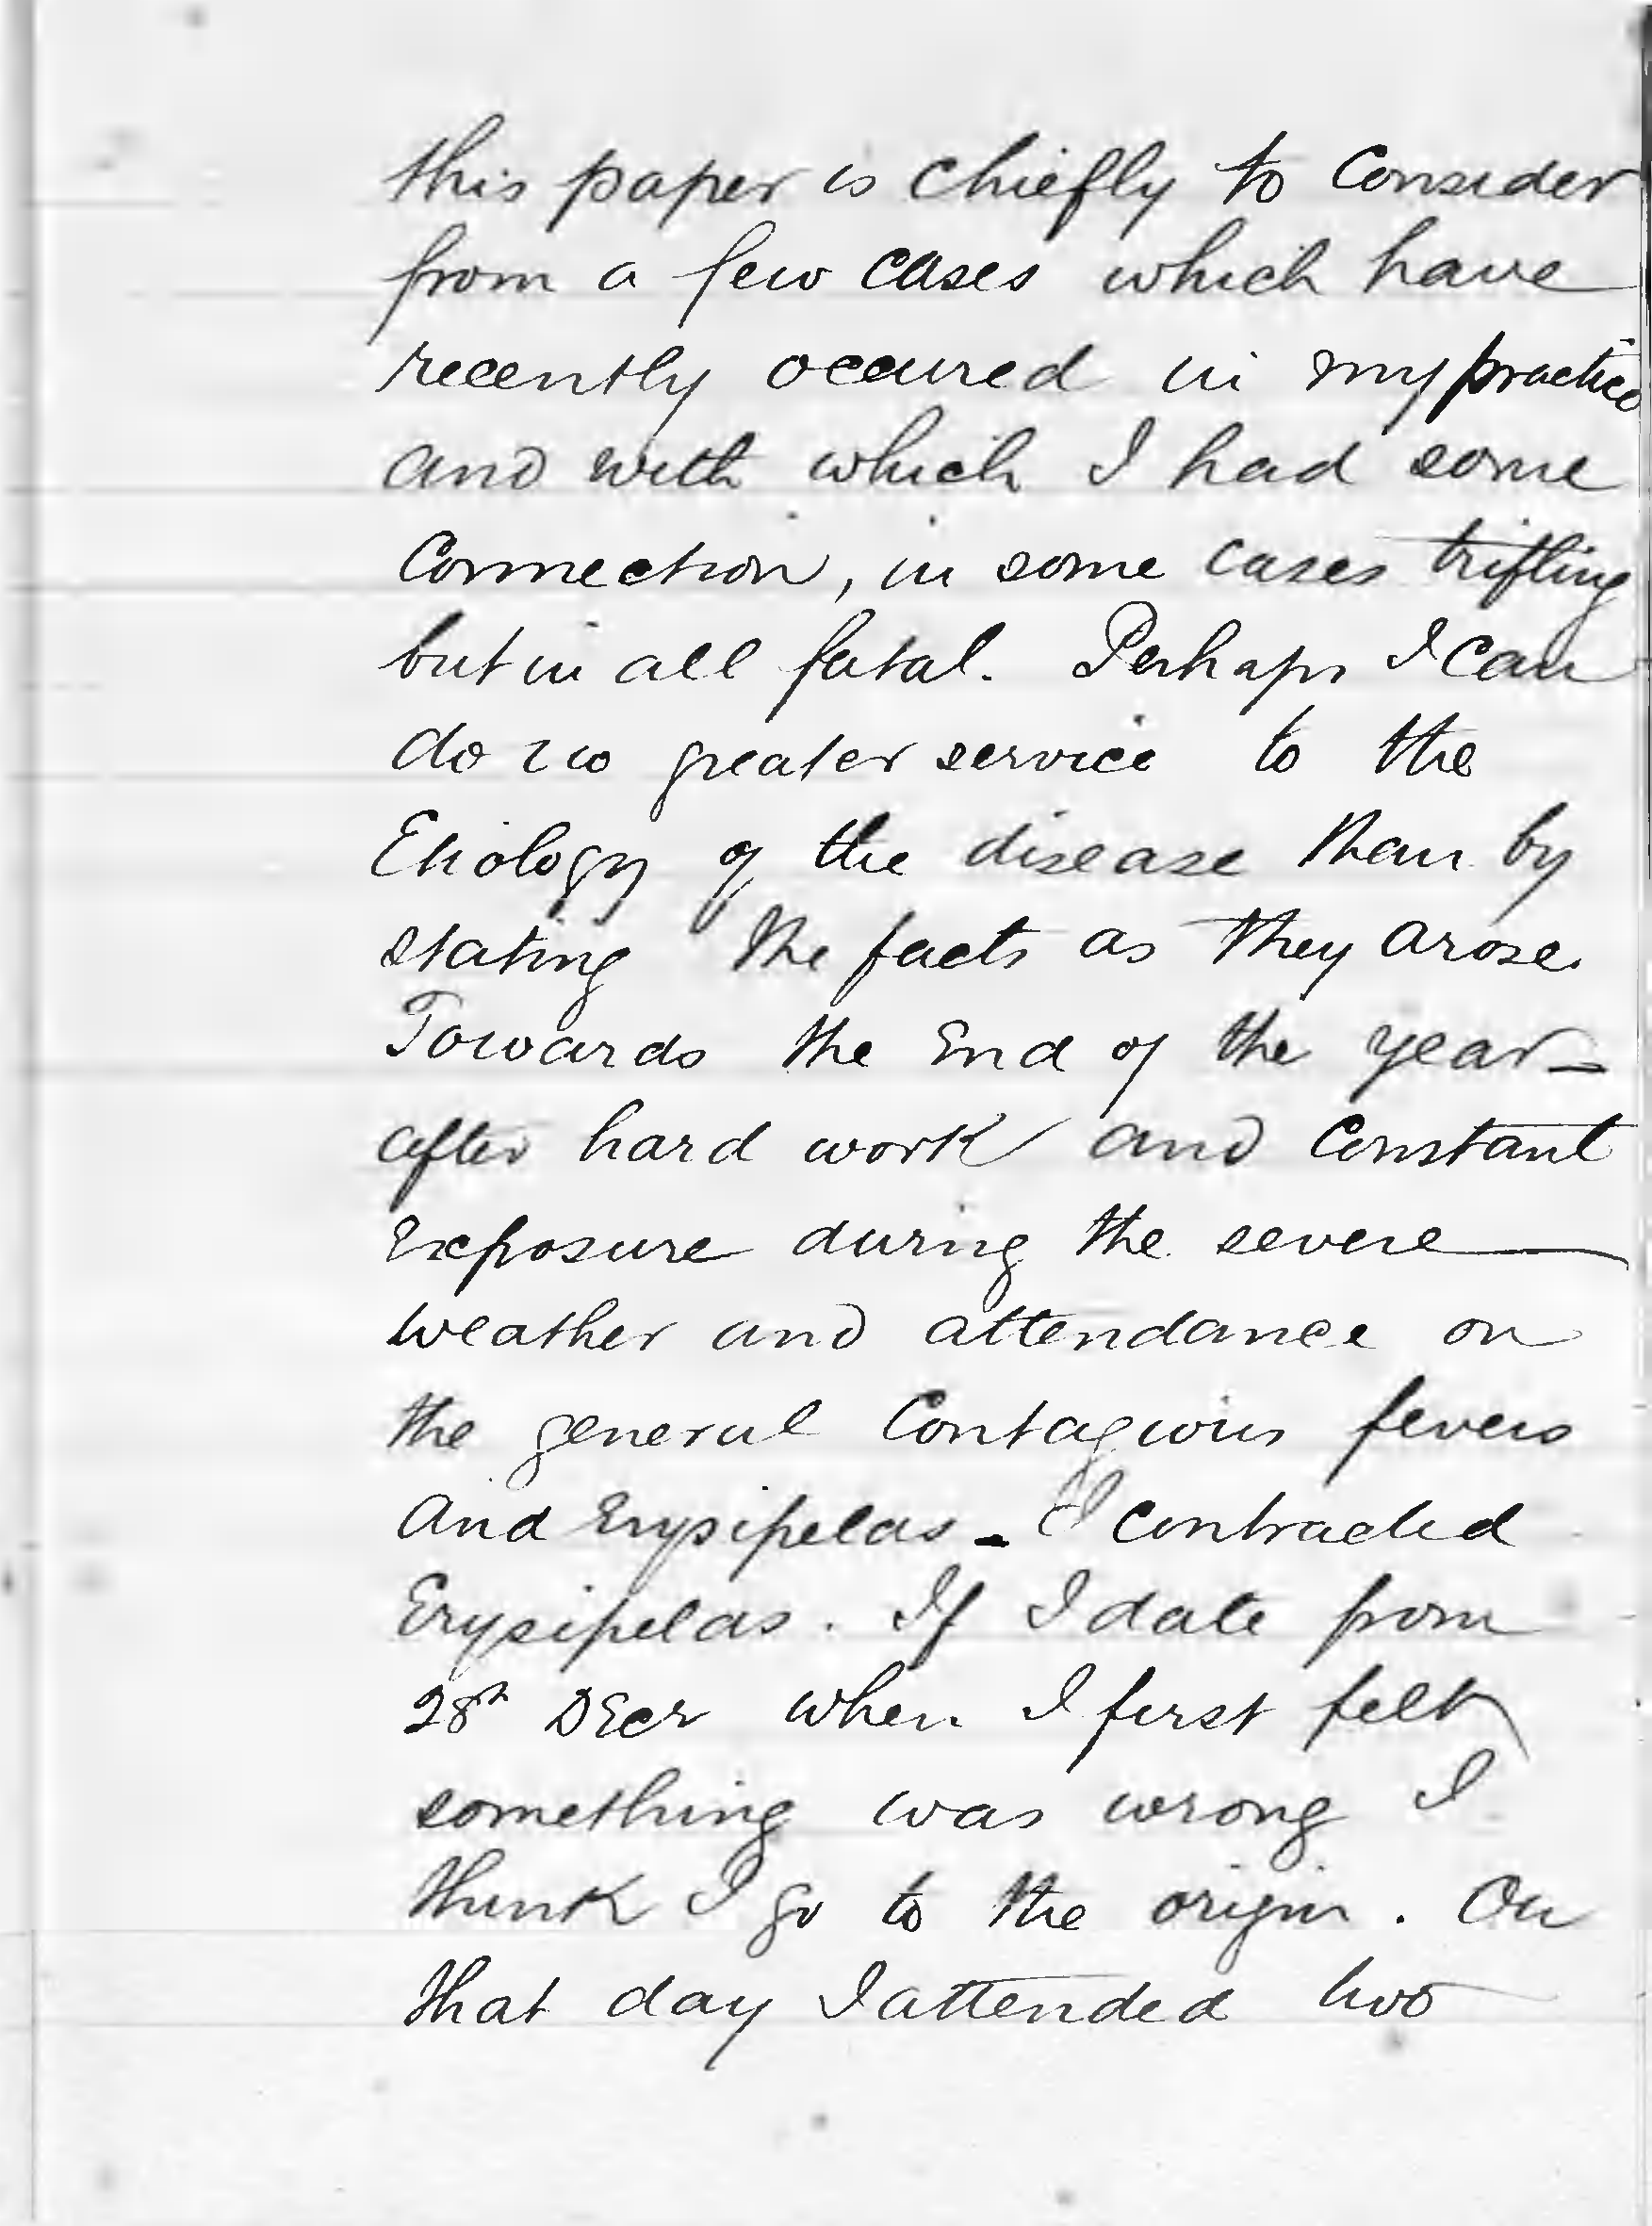 this paper is chiefly to Consider
from a few cases which have
recently occured in my practice
and with which I had some
Connection, in some cases trifling
but in all fatal. Perhaps I can
do no greater service to the
Etiology of the disease than by
stating the facts as they arose.
Towards the End of the year -
after hard work and Constant
Exposure during the severe
weather and attendance on
the general Contagious fevers
and Erysipelas - I contracted
Erysipelas. If I date from
28th Decr when I first felt
something was wrong I
think I go to the origin. On
that day I attended two